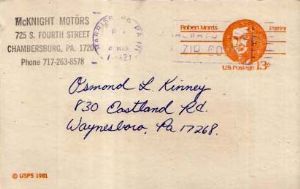 McKNIGHT MOTORS
725 S. FOURTH STREET
CHAMBERSBURG, PA. 17201
Phone 717-263-8578
Robert Morris
Patriot
U.S. Postage 13¢
Osmond L Kinney
830 Eastland Rd.
Waynesboro, Pa 17268.
© USPS 1981